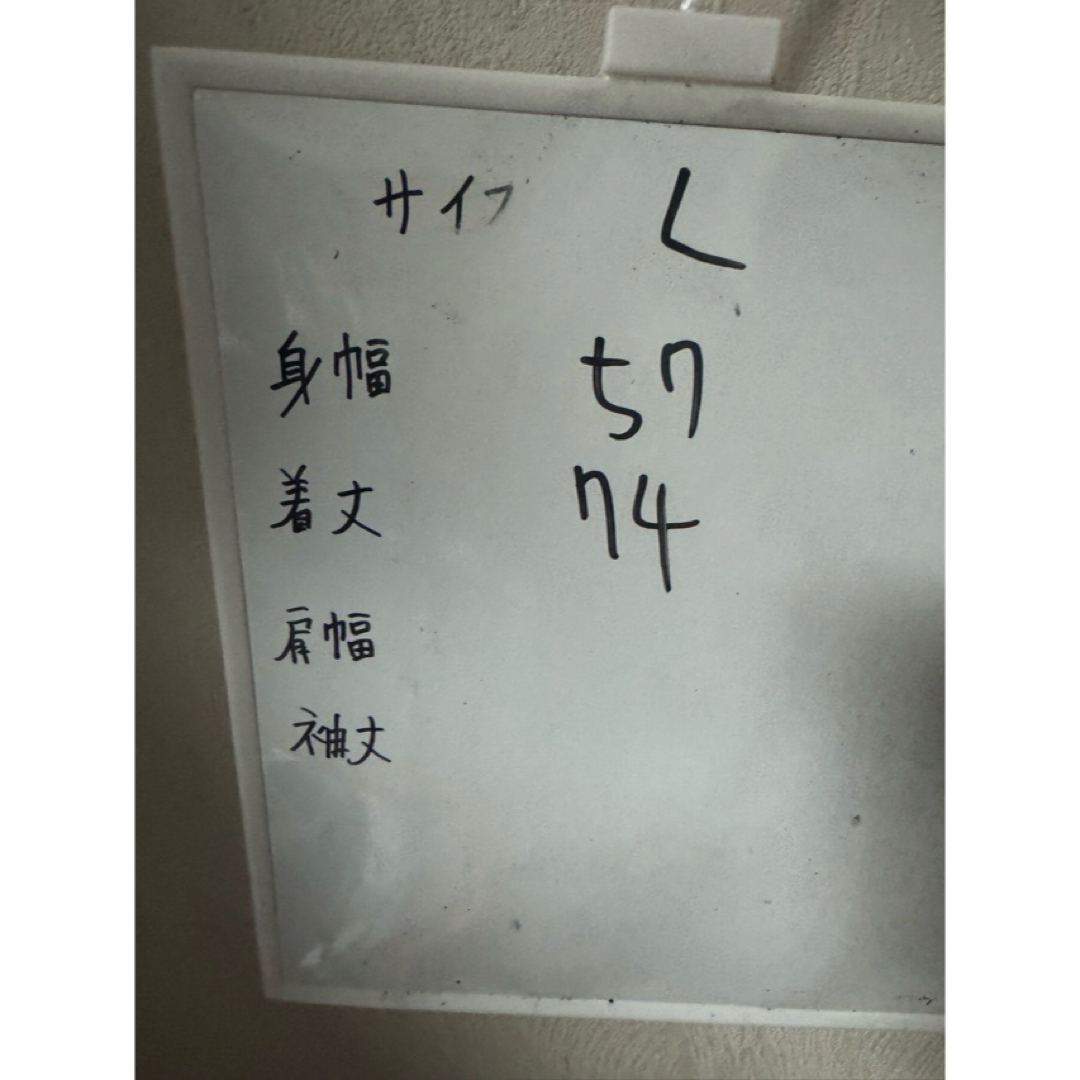 サイフ L
身幅 57
着丈 74
肩幅
袖丈